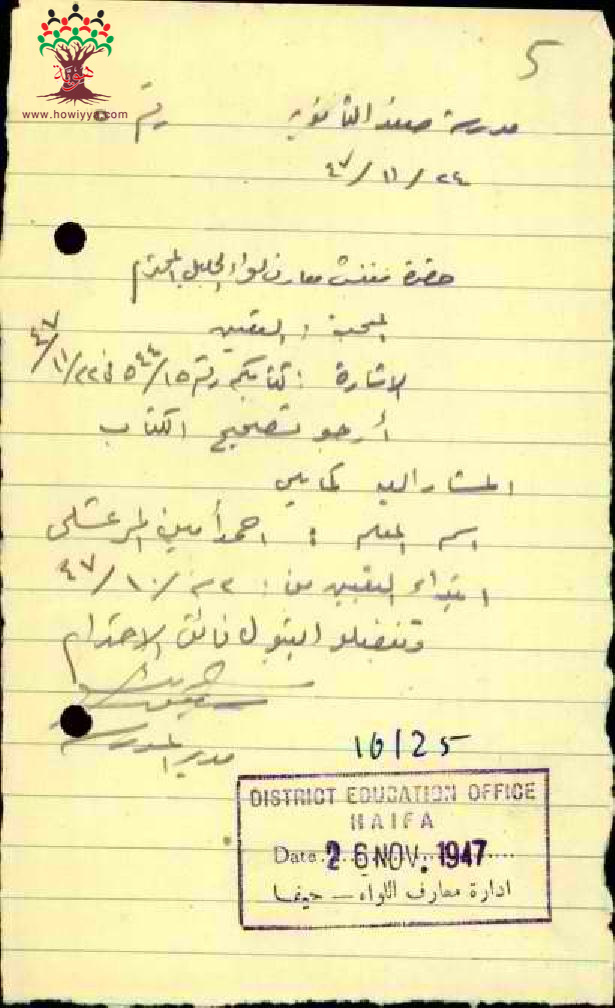 هوية
www.howiyya.com
5
مدرسة صفد الثانوية رقم ٥
٢٤/١١/٤٧
حضرة مفتش معارف لواء الجليل المحترم
المبحث : التعيين
الاشارة : كتابكم رقم ١٥/٥٤٤ في ٢٢/١١/٤٧
أرجو تصحيح الكتاب
المشار اليه كما يلي
اسم المعلم : احمد أمين المرعشلي
ابتداء التعيين من : ٢٢/١٠/٤٧
وتفضلوا بقبول فائق الاحترام
مدير المدرسة
16125
DISTRICT EDUCATION OFFICE
HAIFA
Date 26 NOV. 1947
ادارة معارف اللواء – حيفا